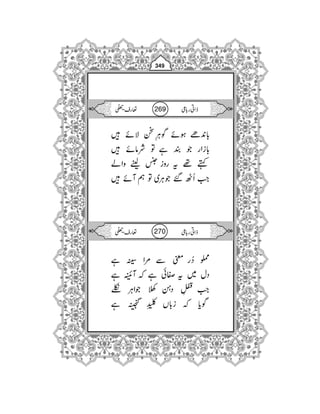 349
ذاتی رباعی 269 تعارف بھٹی
باندھے ہوئے گوہرِ سخن لائے ہیں
بازار جو بند ہے تو شرمائے ہیں
کہتے تھے یہ روز جنس لینے والے
جب اُٹھ گئے جوہری تو ہم آئے ہیں
ذاتی رباعی 270 تعارف بھٹی
مملو دُر معنی سے مرا سینہ ہے
دل میں یہ صفائی ہے کہ آئینہ ہے
جب قفلِ دہن کھلا جواہر نکلے
گویا کہ زباں کلیدِ گنجینہ ہے